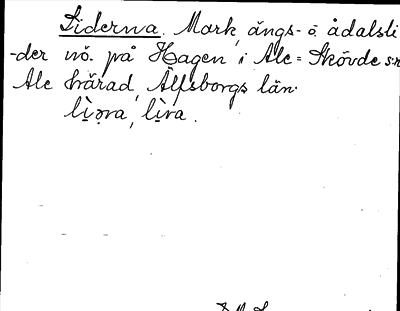 Liderna. Mark, ängs- o ådalsli
-der nö. på Hagen i Ale-Skövde s:n
Ale härad, Älfsborgs län.
lìəra, lìra.